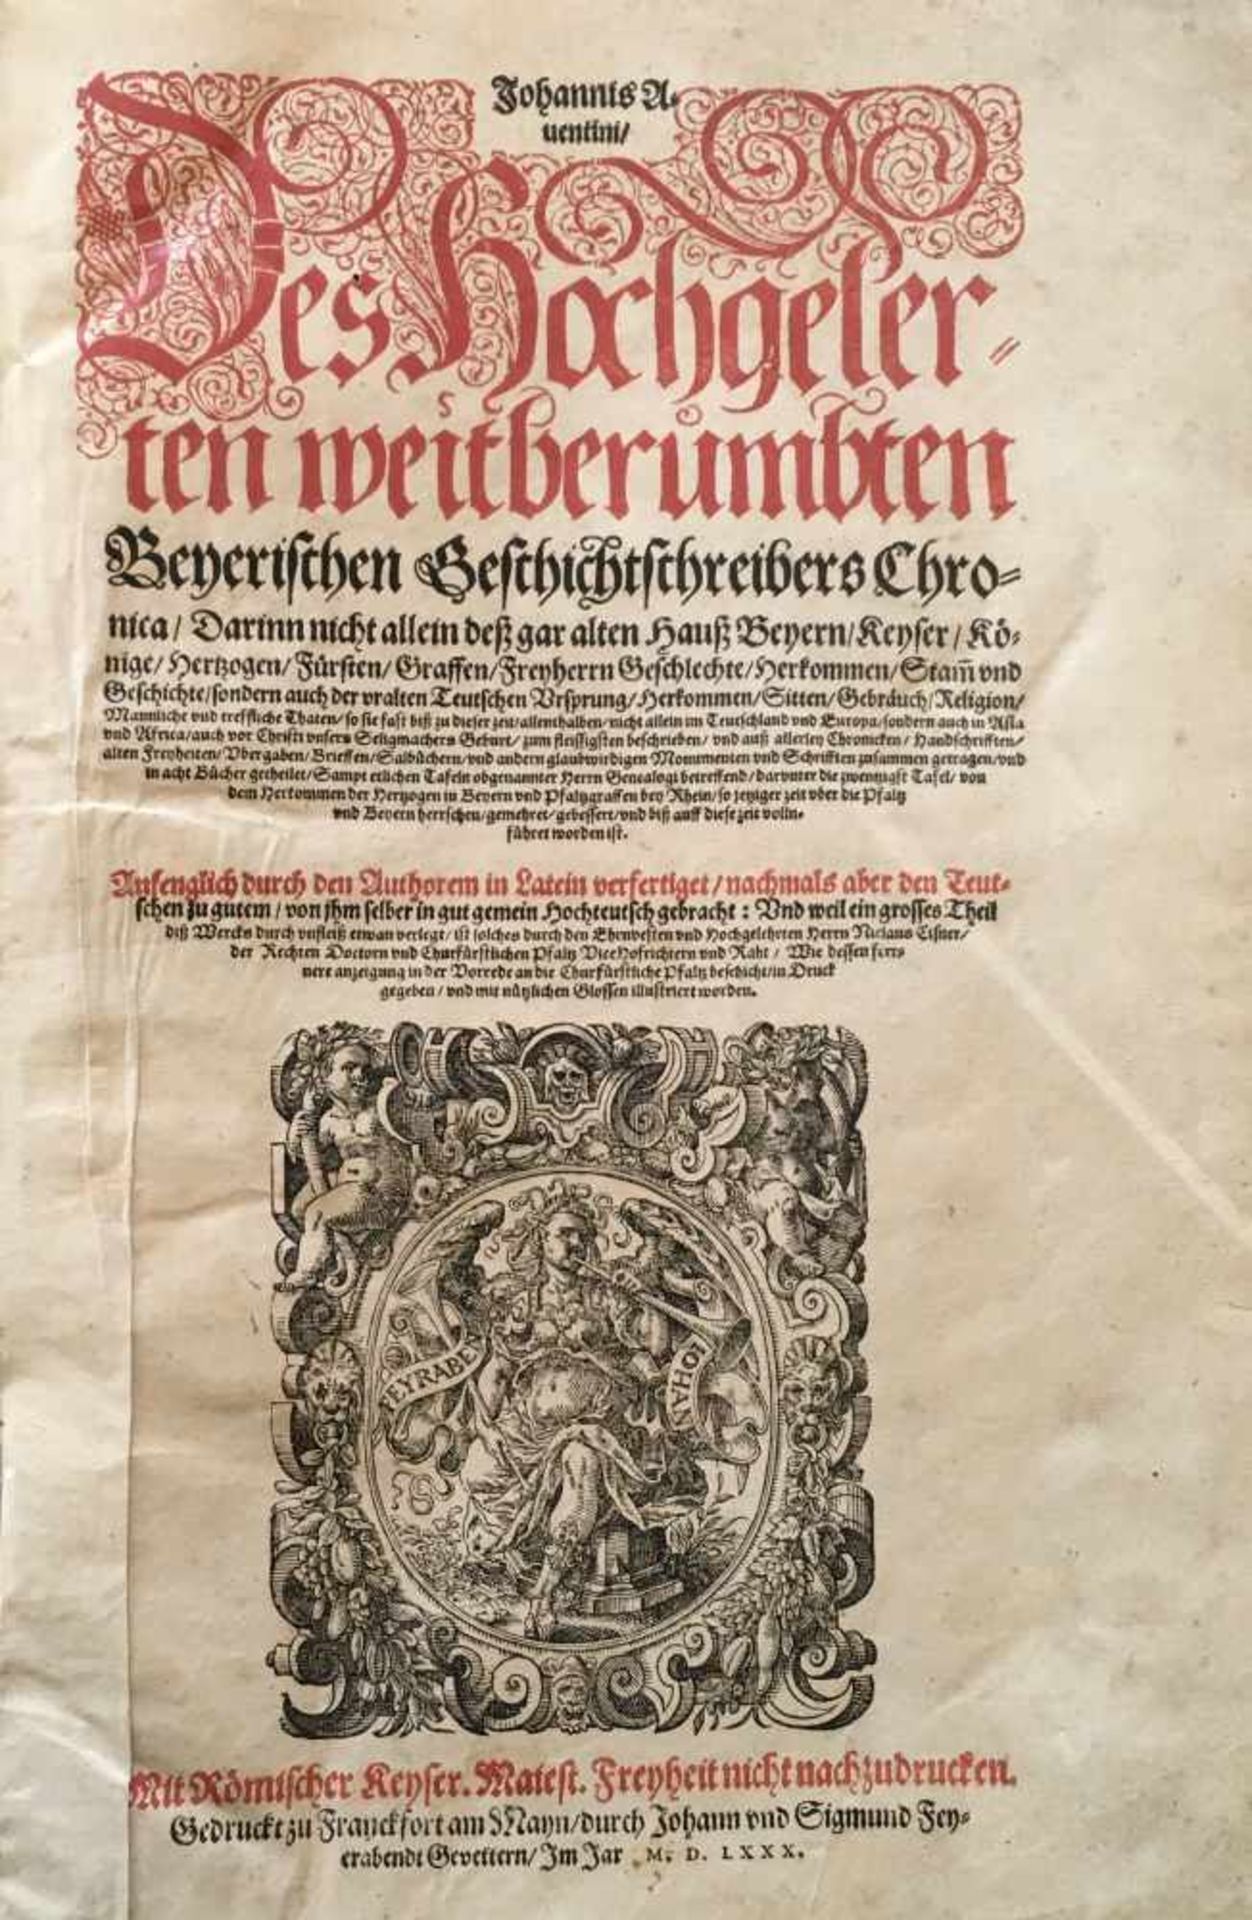 Johannis A-
uentini/
Des Hochgeler-
ten weitberůmbten
Beyerischen Geschichtschreibers Chro-
nica / Darinn nicht allein deß gar alten Hauß Beyern/Keyser / Kö-
nige/ Hertzogen/ Fürsten/ Graffen/Freyherrn Geschlechte/Herkommen/Stam̃ vnd
Geschichte/sondern auch der vralten Teutschen Vrsprung/Herkommen/Sitten/Gebräuch/Religion/
Mannliche vnd treffliche Thaten/ so sie fast biß zu dieser zeit/allenthalben/nicht allein im Teutschland vnd Europa/sondern auch in Asia
vnd Africa/auch vor Christi vnsers Seligmachers Geburt/ zum fleissigsten beschrieben/ vnd auß allerley Chronicken / Handschrifften/
alten Freyheiten/ Vbergaben/Brieffen/Salbüchern/vnd andern glaubwirdigen Monumenten vnd Schrifften zusammen getragen/vnd
in acht Bücher getheilet/Sampt etlichen Tafeln obgenannter Herrn Genealogi betreffend/darunter die zwentzigst Tafel/ von
dem Herkommen der Hertzogen in Beyern vnd Pfaltzgraffen bey Rhein/so jetziger zeit vber die Pfaltz
vnd Beyern herrschen/gemehret/gebessert/vnd biß auff diese zeit volln-
führet worden ist.
Anfenglich durch den Authorem in Latein verfertiget/nachmals aber den Teut-
schen zu gutem / von jhm selber in gut gemein Hochteutsch gebracht : Vnd weil ein grosses Theil
diß Wercks durch vnfleiß etwan verlegt/ ist solches durch den Ehrnvesten vnd Hochgelehrten Herrn Niclaus Cisner/
der Rechten Doctorn vnd Churfürstlichen Pfaltz ViceHofrichtern vnd Raht / Wie dessen ferr-
nere anzeigung in der Vorrede an die Churfürstliche Pfaltz beschicht/in Druck
gegeben/ vnd mit nützlichen Glossen illustriert worden.
FEYRABE
IOHAN
Mit Römischer Keyser. Maiest. Freyheit nicht nachzudrucken.
Gedruckt zu Franckfort am Mayn/durch Johann vnd Sigmund Fey-
erabendt Gevettern/ Im Jar M. D. LXXX.